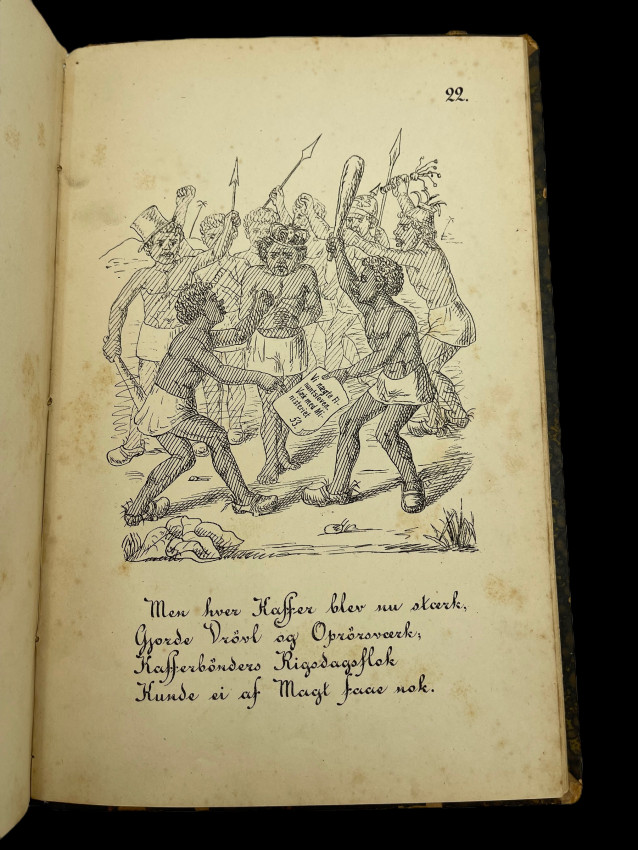 22.
Vi nægte Fi-
nantsloven.
Leve vore Mi-
nisterier
Men hver Kaffer blev nu stærk,
Gjorde Vrövl og Oprörsværk;
Kafferbönders Rigsdagsflok
Kunde ei af Magt faae nok.